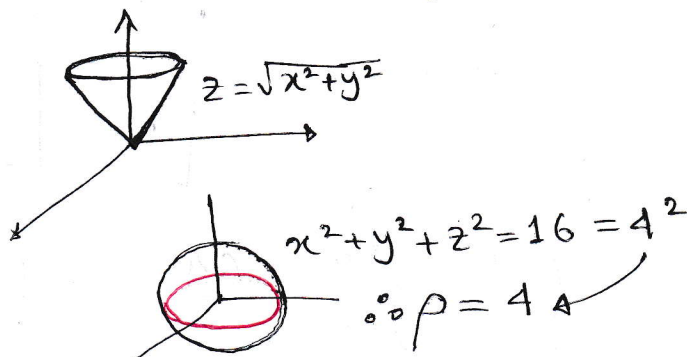 z = √x²+y²
x²+y²+z² = 16 = 4²
∴ ρ = 4